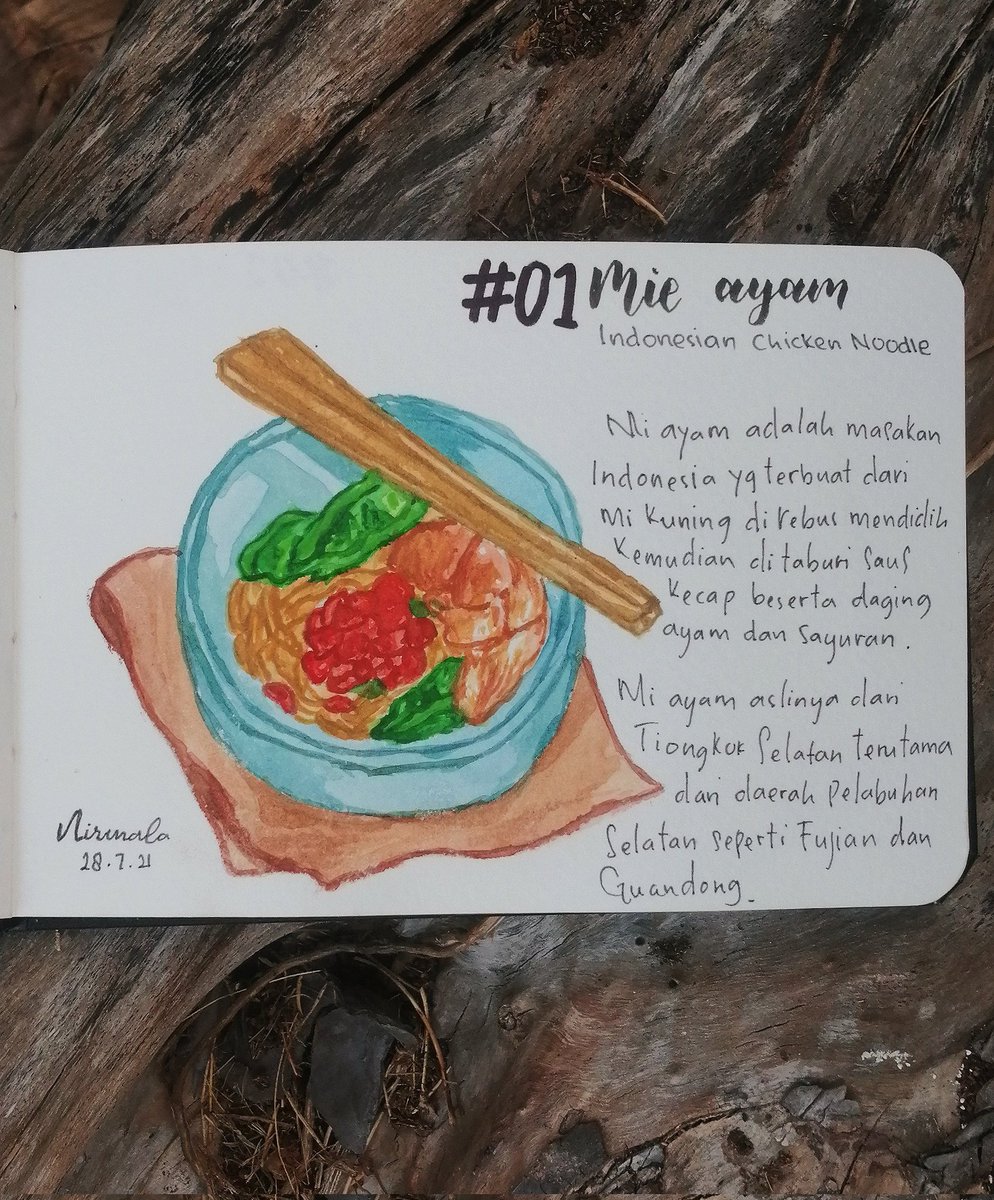 #01 Mie ayam
Indonesian Chicken Noodle
Mi ayam adalah masakan
Indonesia yg terbuat dari
mi kuning di rebus mendidih
kemudian di taburi saus
kecap beserta daging
ayam dan sayuran.
Mi ayam aslinya dari
Tiongkok Selatan terutama
dari daerah pelabuhan
Selatan seperti Fujian dan
Guandong.
Nirmala
28.7.21